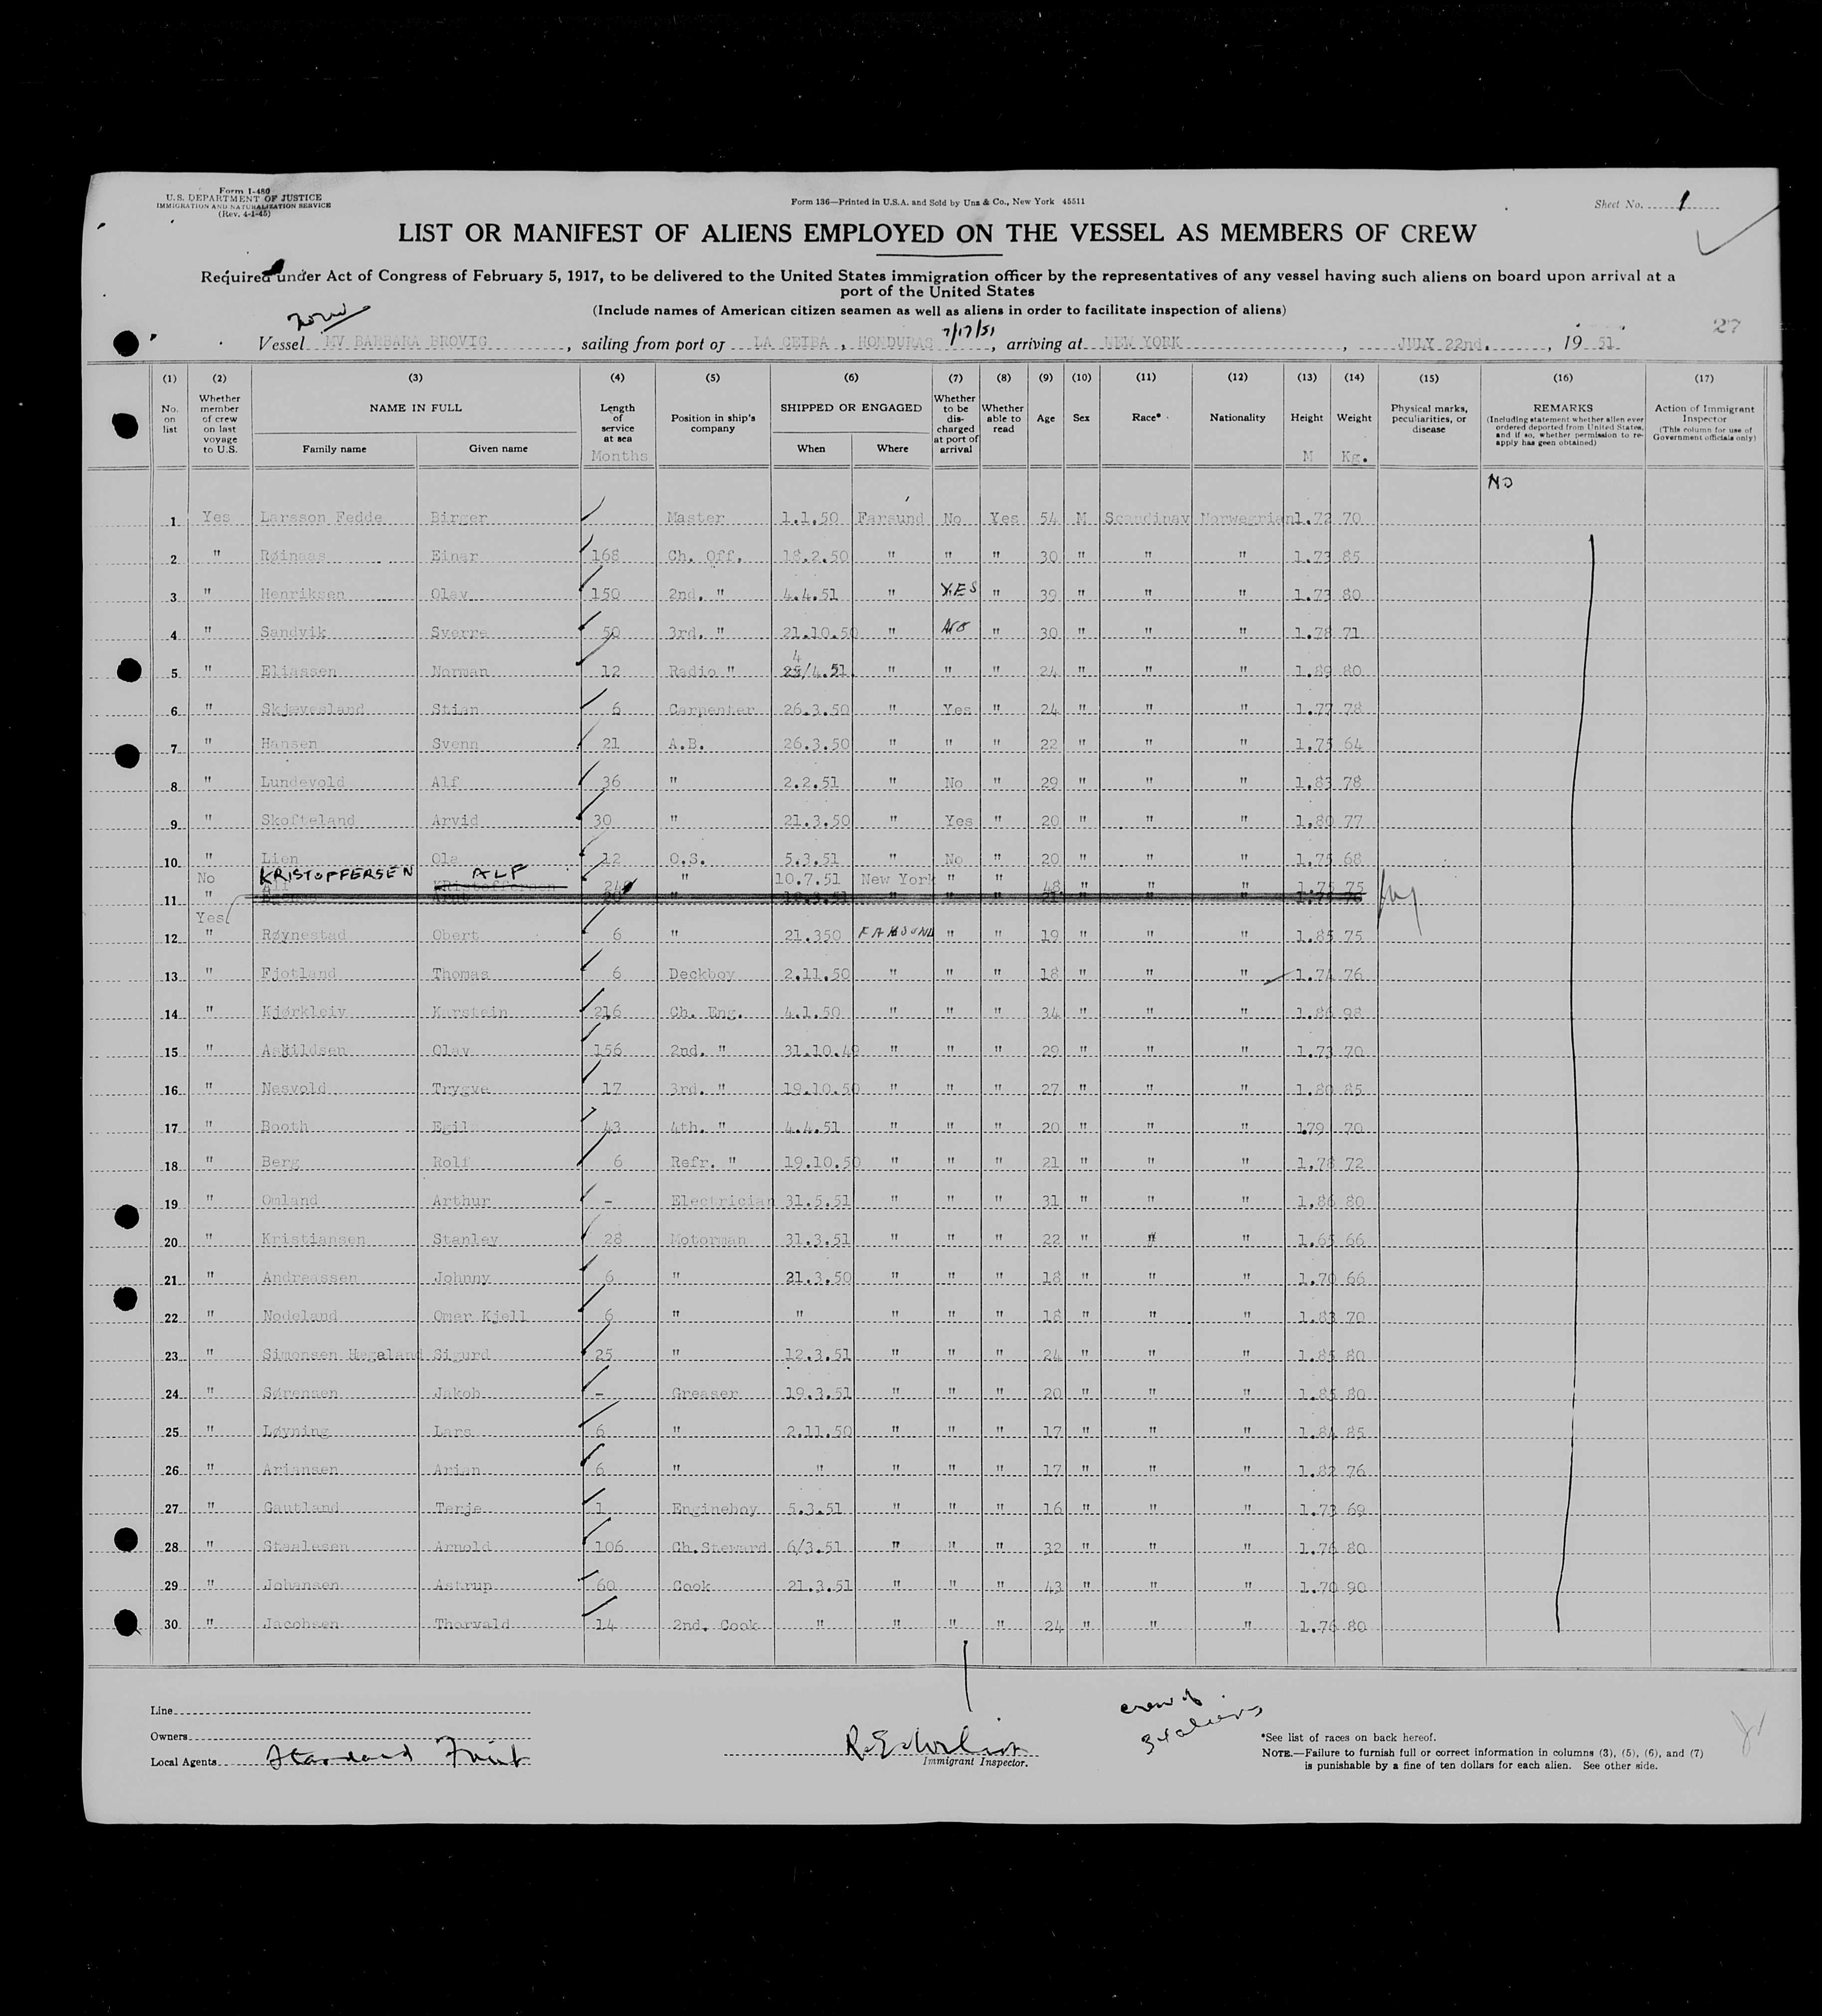 Form I-480
U.S. DEPARTMENT OF JUSTICE
IMMIGRATION AND NATURALIZATION SERVICE
(Rev. 4-1-45)
Form 136—Printed in U.S.A. and Sold by Unz & Co., New York 45511
Sheet No. 1
LIST OR MANIFEST OF ALIENS EMPLOYED ON THE VESSEL AS MEMBERS OF CREW
Required under Act of Congress of February 5, 1917, to be delivered to the United States immigration officer by the representatives of any vessel having such aliens on board upon arrival at a
port of the United States
(Include names of American citizen seamen as well as aliens in order to facilitate inspection of aliens)
7/17/51
27
Vessel MV BARBARA BROVIG, sailing from port of LA CEIBA, HONDURAS, arriving at NEW YORK, JULY 22nd., 19 51
(1) (2) (3) (4) (5) (6) (7) (8) (9) (10) (11) (12) (13) (14) (15) (16) (17)
No. on list
Whether member of crew on last voyage to U.S.
NAME IN FULL
Family name Given name
Length of service at sea
Months
Position in ship's company
SHIPPED OR ENGAGED
When Where
Whether to be discharged at port of arrival
Whether able to read
Age
Sex
Race*
Nationality
Height
M
Weight
Kg.
Physical marks, peculiarities, or disease
REMARKS
(Including statement whether alien ever ordered deported from United States, and if so, whether permission to re-apply has geen obtained)
Action of Immigrant Inspector
(This column for use of Government officials only)
NO
1 Yes Larsson Fedde Birger Master 1.1.50 Farsund No Yes 54 M Scandinav Norwegrien 1.72 70
2 " Røinaas Einar 168 Ch. Off. 18.2.50 " " " 30 " " " 1.73 85
3 " Henriksen Olav 150 2nd. " 4.4.51 " YES " 39 " " " 1.73 80
4 " Sandvik Sverre 50 3rd. " 21.10.50 " NO " 30 " " " 1.78 71
5 " Eliassen Norman 12 Radio " 4/4.51 " " " 24 " " " 1.89 80
6 " Skjævesland Stian 6 Carpenter 26.3.50 " Yes " 24 " " " 1.77 78
7 " Hansen Svenn 21 A.B. 26.3.50 " " " 22 " " " 1.75 64
8 " Lundevold Alf 36 " 2.2.51 " No " 29 " " " 1.83 78
9 " Skofteland Arvid 30 " 21.3.50 " Yes " 20 " " " 1.80 77
10 " Lien Ola 12 O.S. 5.3.51 " No " 20 " " " 1.75 68
No KRISTOFFERSEN ALF Kristoffersen 240 " 10.7.51 New York " " 48 " " " 1.75 75
11 "
Yes
12 " Røynestad Obert 6 " 21.350 FARSUND " " 19 " " " 1.85 75
13 " Fjotland Thomas 6 Deckboy 2.11.50 " " " 18 " " " 1.74 76
14 " Kjørkleiv Karstein 216 Ch. Eng. 4.1.50 " " " 34 " " " 1.86 98
15 " Askildsen Olav 156 2nd. " 31.10.49 " " " 29 " " " 1.73 70
16 " Nesvold Trygve 17 3rd. " 19.10.50 " " " 27 " " " 1.80 85
17 " Booth Egil 43 4th. " 4.4.51 " " " 20 " " " 179 70
18 " Berg Rolf 6 Refr. " 19.10.50 " " " 21 " " " 1.78 72
19 " Omland Arthur - Electrician 31.5.51 " " " 31 " " " 1.86 80
20 " Kristiansen Stanley 28 Motorman 31.3.51 " " " 22 " " " 1.65 66
21 " Andreassen Johnny 6 " 21.3.50 " " " 18 " " " 1.70 66
22 " Nodeland Omer Kjell 6 " " " " " 18 " " " 1.83 70
23 " Simonsen Hægaland Sigurd 25 " 12.3.51 " " " 24 " " " 1.85 80
24 " Sørensen Jakob - Greaser 19.3.51 " " " 20 " " " 1.85 80
25 " Løyning Lars 6 " 2.11.50 " " " 17 " " " 1.84 85
26 " Ariansen Arian 6 " " " " " 17 " " " 1.82 76
27 " Gautland Terje 1 Engineboy 5.3.51 " " " 16 " " " 1.73 69
28 " Staalesen Arnold 106 Ch.Steward 6/3.51 " " " 32 " " " 1.76 80
29 " Johansen Astrup 60 Cook 21.3.51 " " " 43 " " " 1.70 90
30 " Jacobsen Thorvald 14 2nd. Cook " " " " 24 " " " 1.76 80
Line
Owners
Local Agents Standard Fruit
Immigrant Inspector.
crew of
34 aliens
*See list of races on back hereof.
NOTE.—Failure to furnish full or correct information in columns (3), (5), (6), and (7)
is punishable by a fine of ten dollars for each alien. See other side.